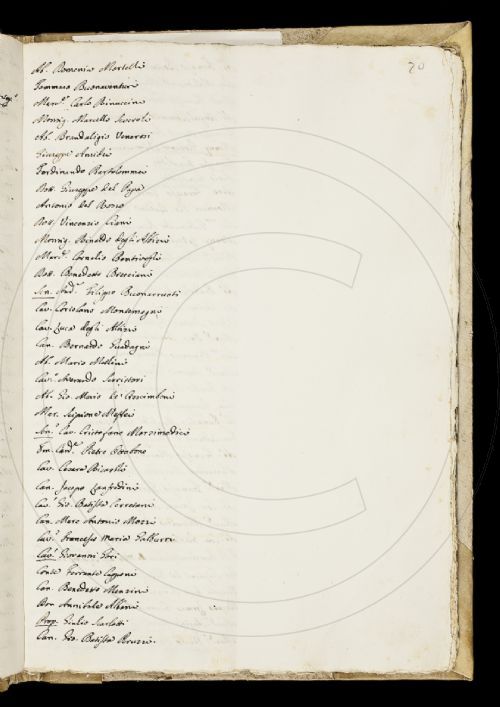 20
Ab. Domenico Martelli
Tommaso Buonaventuri
March.e Carlo Rinuccini
Monsig. Marcello Severoli
Ab. Brandaligio Venerosi
Giuseppe Averani
Ferdinando Bartolommei
Dott. Giuseppe del Papa
Antonio del Rosso
Dott. Vincenzio
Monsig. Rinaldo degli Albizi
Mar. Cornelio Bentivogli
Dott. Benedetto Bresciani
Sen. Aud.e Filippo Buonarruoti
Cav. Coriolano Montemagni
Cav. Luca degli Albizi
Can. Bernardo Guadagni
Ab. Mario Mellini
Cav. Averardo Serristori
Ab. Gio. Mario de Crescimboni
Mar. Scipione Maffei
Sen. Cav. Cristofano Marzimedici
Em. Card.e Pietro Ottobono
Cav. Cesare Ricasoli
Can. Jacopo Lanfredini
Cav. Gio. Batista Cerretani
Can. Marc Antonio Mozzi
Cav. Francesco Maria Gabburri
Cav. Giovanni
Conte Ferrante Capponi
Can. Benedetto Menzini
Don Annibale Albani
Prop. Giulio Scarlatti
Can. Gio. Batista